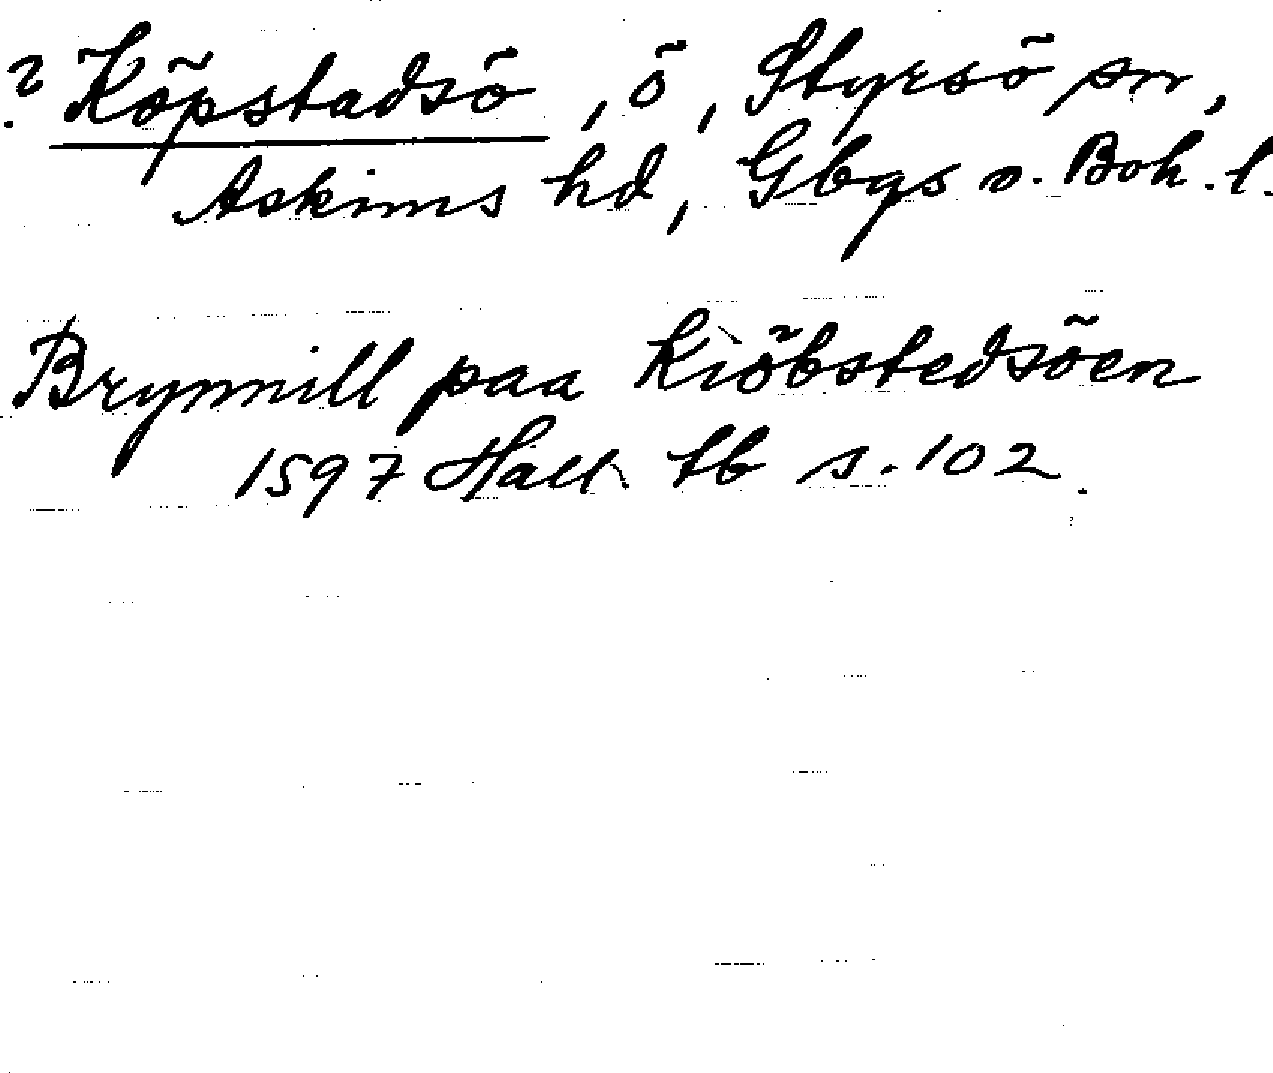 ? Köpstadsö, ö, Styrsö sn,
Askims hd, Gbgs o. Boh. l.
Brynnill paa Kiöbstedsöen
1597 Hall tb s. 102.